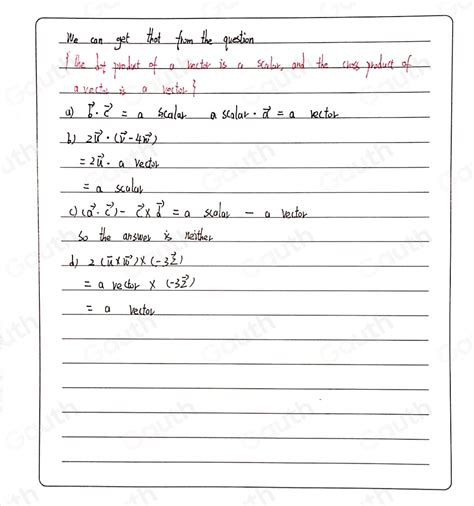 We can get that from the question
{ the dot product of a vector is a scalar, and the cross product of
a vector is a vector }
a) b⃗ · c⃗ = a scalar a scalar · a⃗ = a vector
b) 2u⃗ · (v⃗ - 4w⃗)
= 2u⃗ · a vector
= a scalar
c) (a⃗ · c⃗) - c⃗ × d⃗ = a scalar - a vector
so the answer is neither
d) 2 (u⃗ × w⃗) × (-3z⃗)
= a vector × (-3z⃗)
= a vector